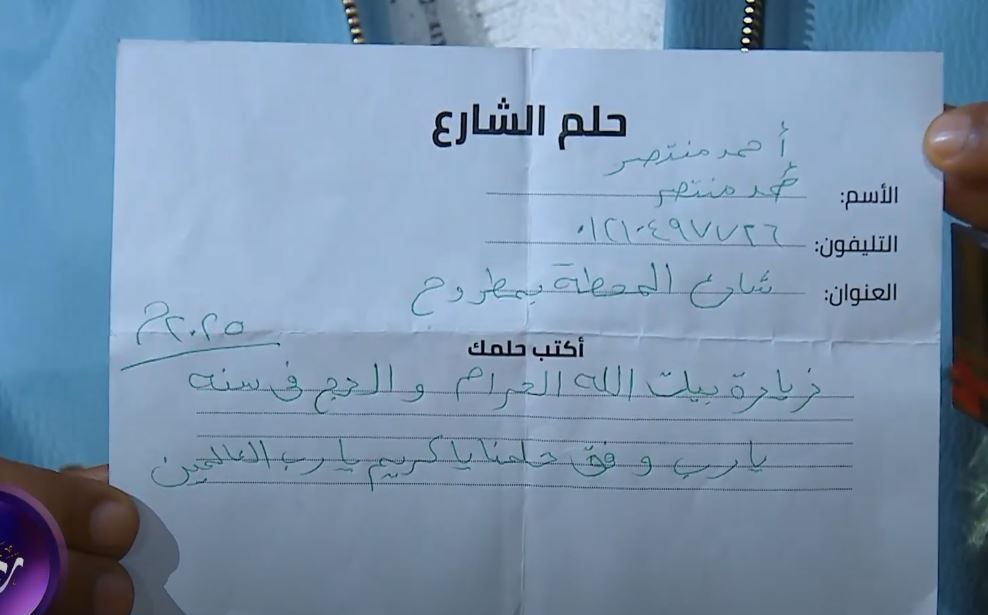 حلم الشارع
أحمد منتصر
الأسم: محمد منتصر
التليفون: ٠١٢١٠٤٩٧٧٢٦
العنوان: شارع المحطة بمطروح
٢٠٢٥م
أكتب حلمك
زيارة بيت الله الحرام والحج فى سنه
يارب وفق حلمنا يا كريم يارب العالمين